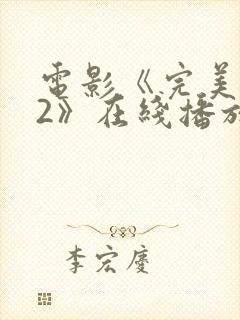 電影《完美
2》在綫播放
李宏慶